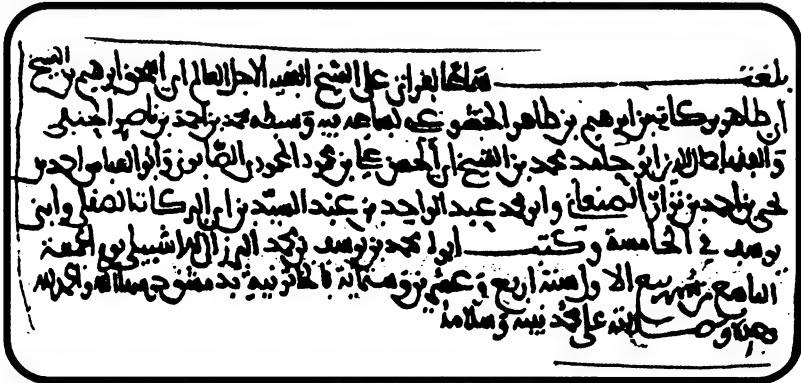 بلغت سماعا بقراتي على الشيخ الفقيه الاجل العالم ابي اسحق ابرهيم بن الشيخ
ابي طاهر بركات بن ابرهيم بن طاهر الخشوعي بسماعه فيه وسطه محمد بن احمد بن ناصر الحنبلي
والفقها جمال الدين ابو حامد محمد بن الشيخ ابي الحسن علي بن محمود المحمودي بن الصابوني وابو العباس احمد بن
يحيى بن احمد بن نزار الصنعاني وابو محمد عبد الواحد بن عبد السيد بن ابي البركات الصقلي وابن
يوسف في الخامسة وكتب ابو محمد بن يوسف بن محمد البرزالي الاشبيلي يوم الجمعة
التاسع من شهر ربيع الاول سنة اربع وعشرين وستمائة بالخاتونية بدمشق حرسها الله والحمد لله
وحده وصلاته على محمد نبيه وسلامه